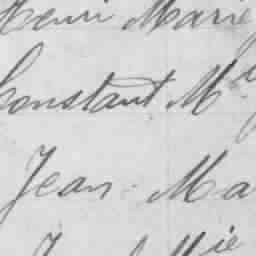 Henri Marie
Constant M
Jean Ma